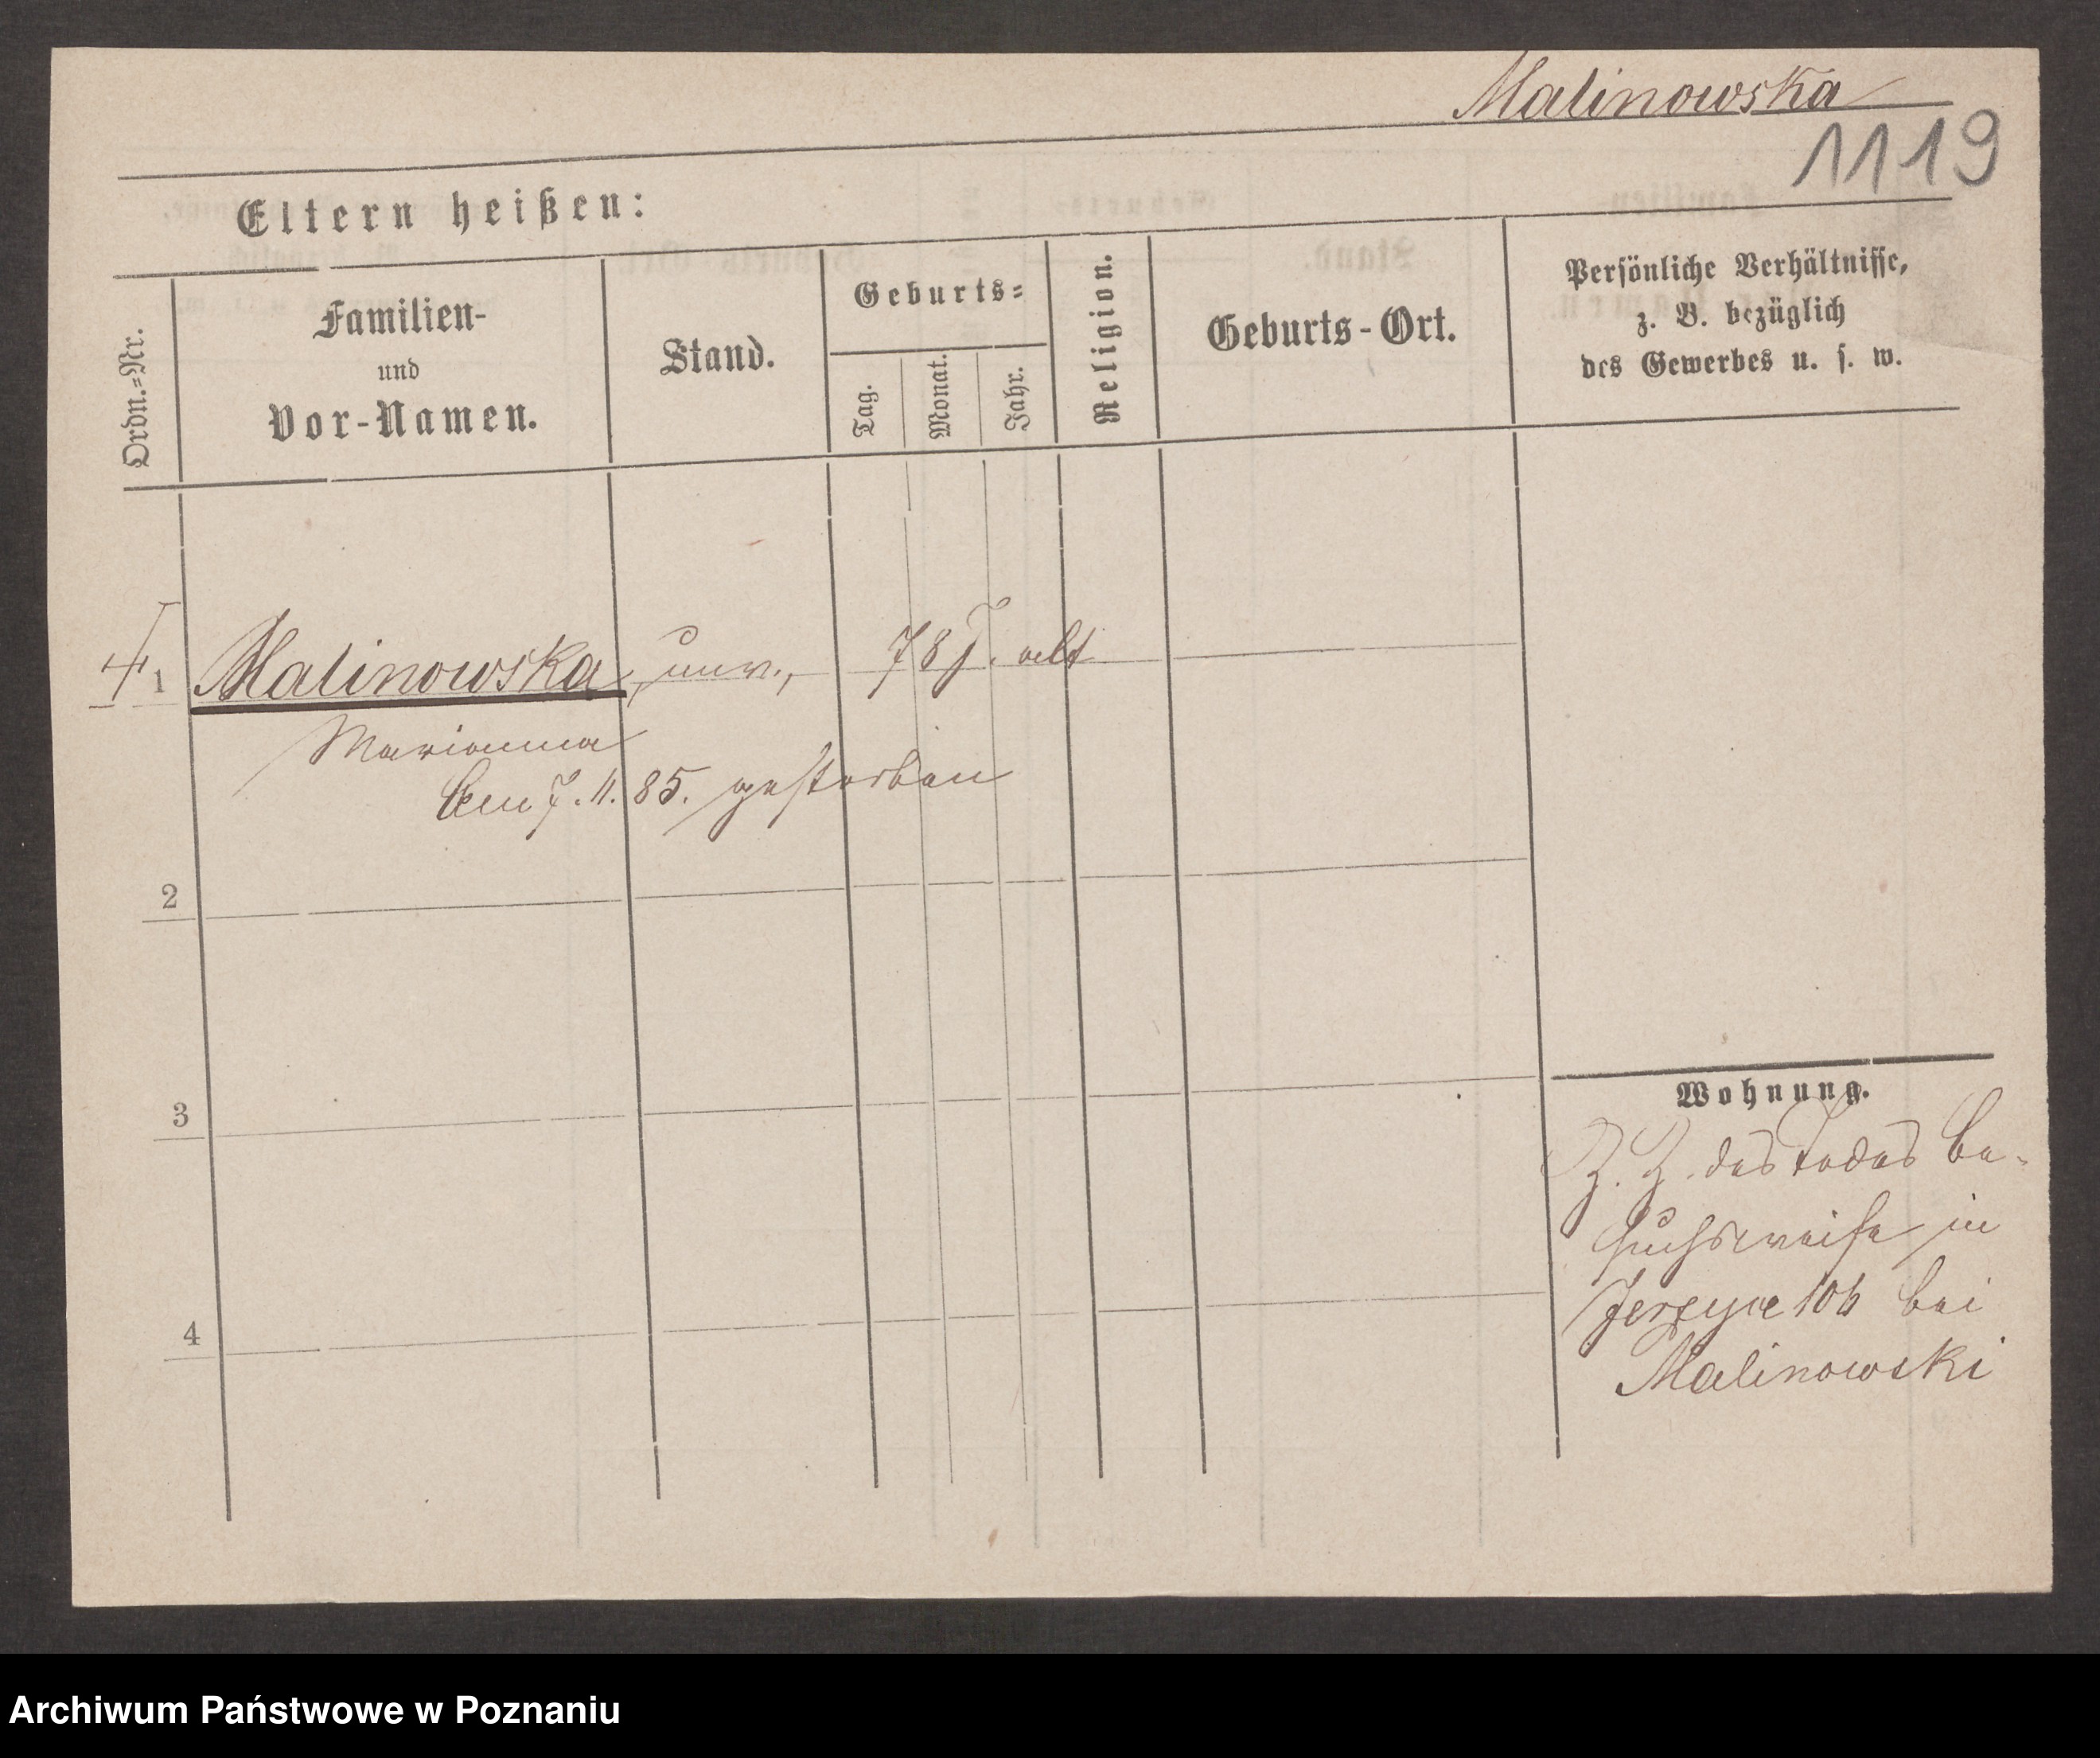 Malinowska
1119
Eltern heißen:
Ordn.=Nr.
Familien-
und
Vor-Namen.
Stand.
Geburts=
Tag.
Monat.
Jahr.
Religion.
Geburts-Ort.
Persönliche Verhältnisse,
z. B. bezüglich
des Gewerbes u. s. w.
1 Malinowska, unv., 78 J. alt
Marianna
den 7.11.85. gestorben
2
3
4
Wohnung.
Z. Z. des Todes be-
suchsweise in
Jerzyce 106 bei
Malinowski
Archiwum Państwowe w Poznaniu